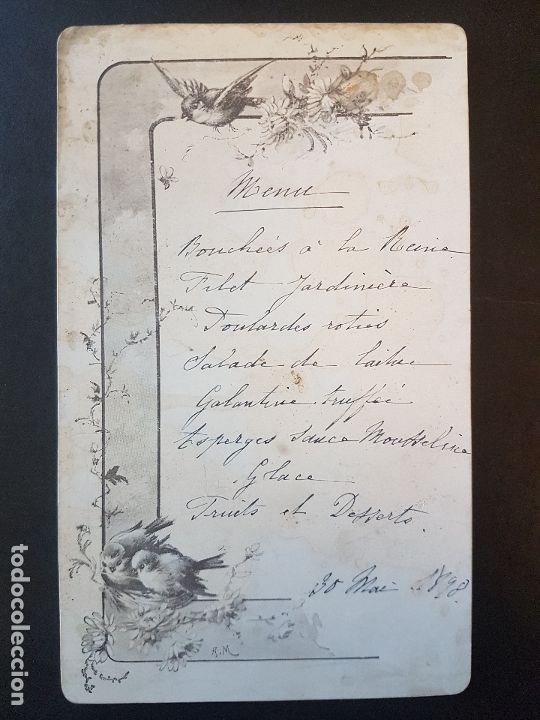 Menu
Bouchées à la Reine
Filet Jardinière
Poulardes roties
Salade de laitue
Galantine truffée
Asperges sauce Mousseline
Glace
Fruits et Desserts.
30 Mai 1898
R.M
todocoleccion